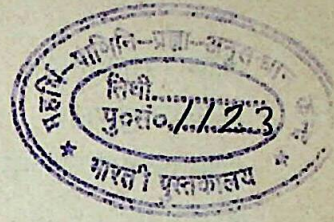 महर्षि-पाणिनि-प्रज्ञा-अनुसन्धान
तिथी..............
पु०सं०.1123
* भारती पुस्तकालय *